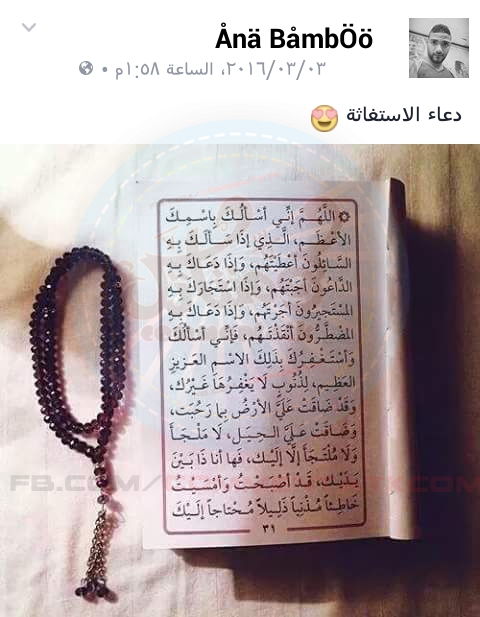 Ånä BåmbÖö
٢٠١٦/٠٣/٠٣، الساعة ١:٥٨م
دعاء الاستغاثة 😍
اللَّهُمَّ إِنِّي أَسْأَلُكَ بِاسْمِكَ
الأَعْظَمِ، الَّذِي إِذَا سَأَلَكَ بِهِ
السَّائِلُونَ أَعْطَيْتَهُم، وَإِذَا دَعَاكَ بِهِ
الدَّاعُونَ أَجَبْتَهُم، وَإِذَا اسْتَجَارَكَ بِهِ
المُسْتَجِيرُونَ أَجَرْتَهُم، وَإِذَا دَعَاكَ بِهِ
المُضْطَرُّونَ أَنْقَذْتَهُم، فَإِنِّي أَسْأَلُكَ
وَأَسْتَغْفِرُكَ بِذَلِكَ الاسْمِ العَزِيزِ
العَظِيمِ، لِذُنُوبٍ لَا يَغْفِرُهَا غَيْرُكَ،
وَقَدْ ضَاقَتْ عَلَيَّ الأَرْضُ بِمَا رَحُبَت،
وَضَاقَتْ عَلَيَّ الحِيَل، لَا مَلْجَأَ
وَلَا مُلْتَجَأَ إِلَّا إِلَيْكَ، فَهَا أَنَا ذَا بَيْنَ
يَدَيْكَ، قَدْ أَصْبَحْتُ وَأَمْسَيْتُ
خَاطِئاً مُذْنِباً ذَلِيلاً مُحْتَاجاً إِلَيْكَ
٣١
FB.COM/